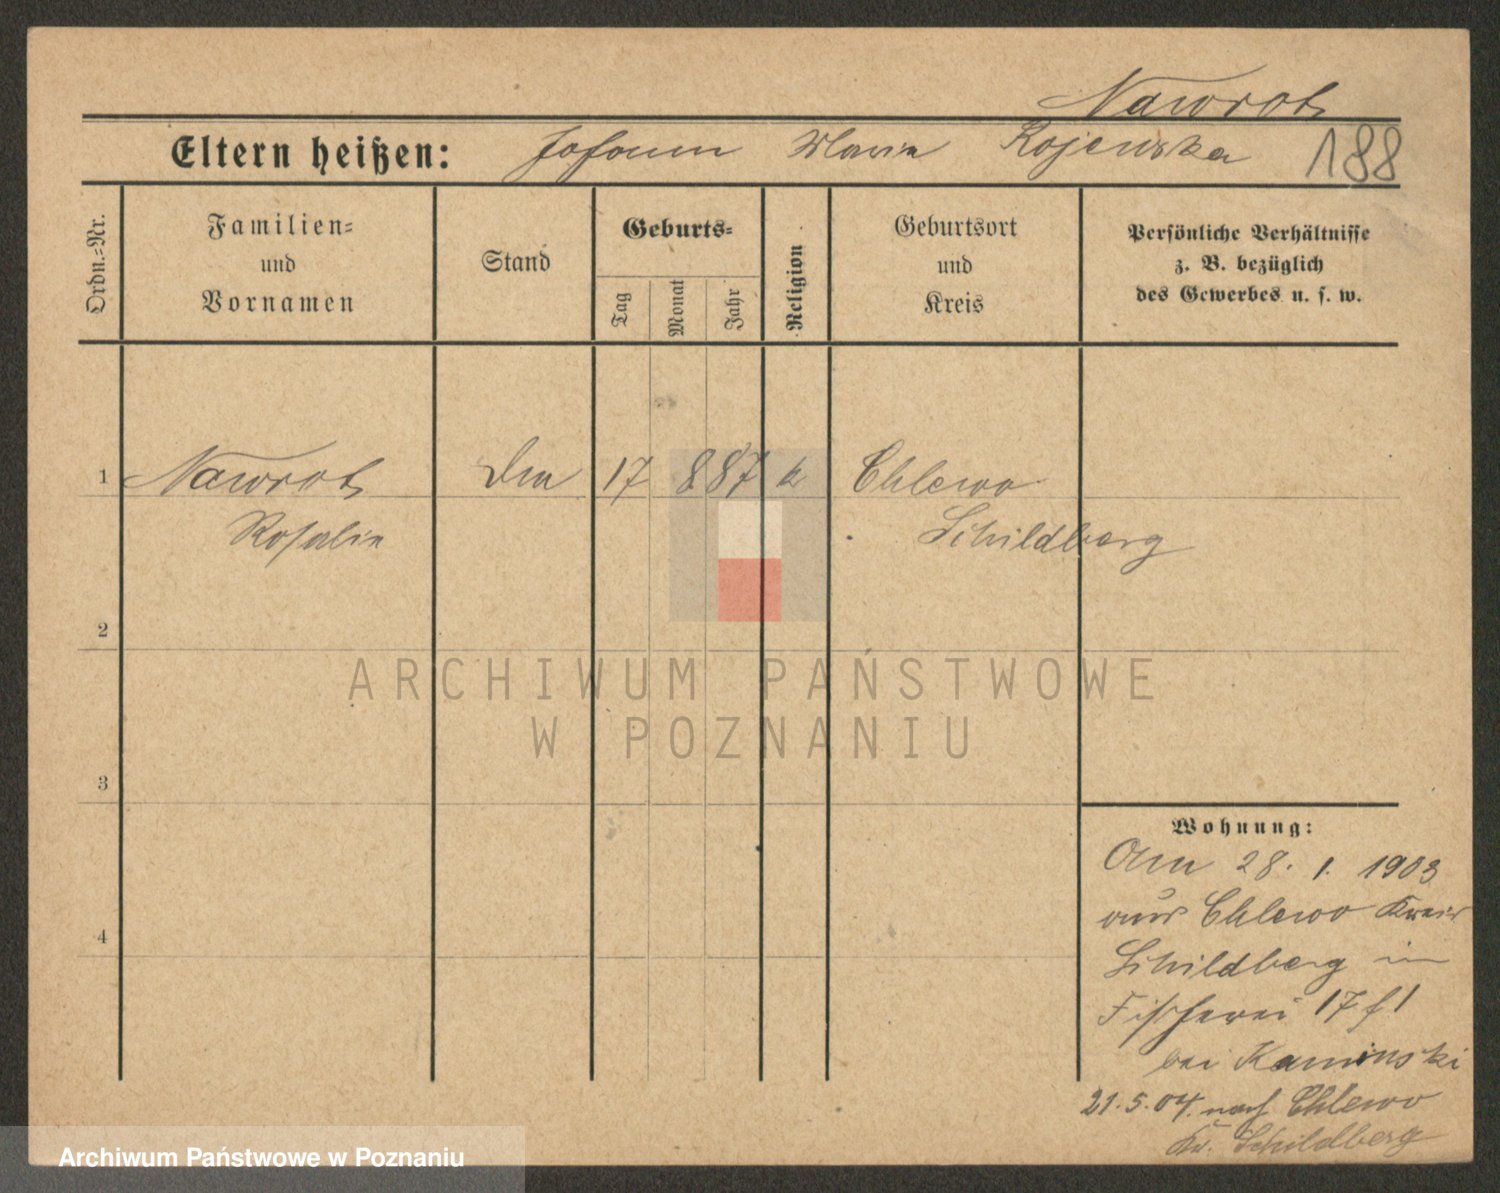 Nawrot
Eltern heißen: Johann Maria Rojewska 188
Ordn.-Nr.
Familien- und Vornamen
Stand
Geburts-
Tag
Monat
Jahr
Religion
Geburtsort und Kreis
Persönliche Verhältnisse
z. B. bezüglich
des Gewerbes u. s. w.
1 Nawrot 17 8 87 k Chlewo
Rosalie Schildberg
2
3
4
Wohnung:
Am 28. 1. 1903
aus Chlewo Kreis
Schildberg in
Fischerei 17 f 1
bei Kaminski
21.5.04. nach Chlewo
Kr. Schildberg
ARCHIWUM PAŃSTWOWE
W POZNANIU
Archiwum Państwowe w Poznaniu